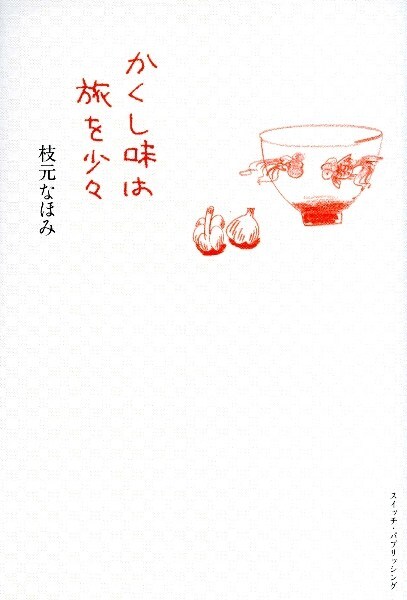 かくし味は
旅を少々
枝元なほみ
スイッチ・パブリッシング